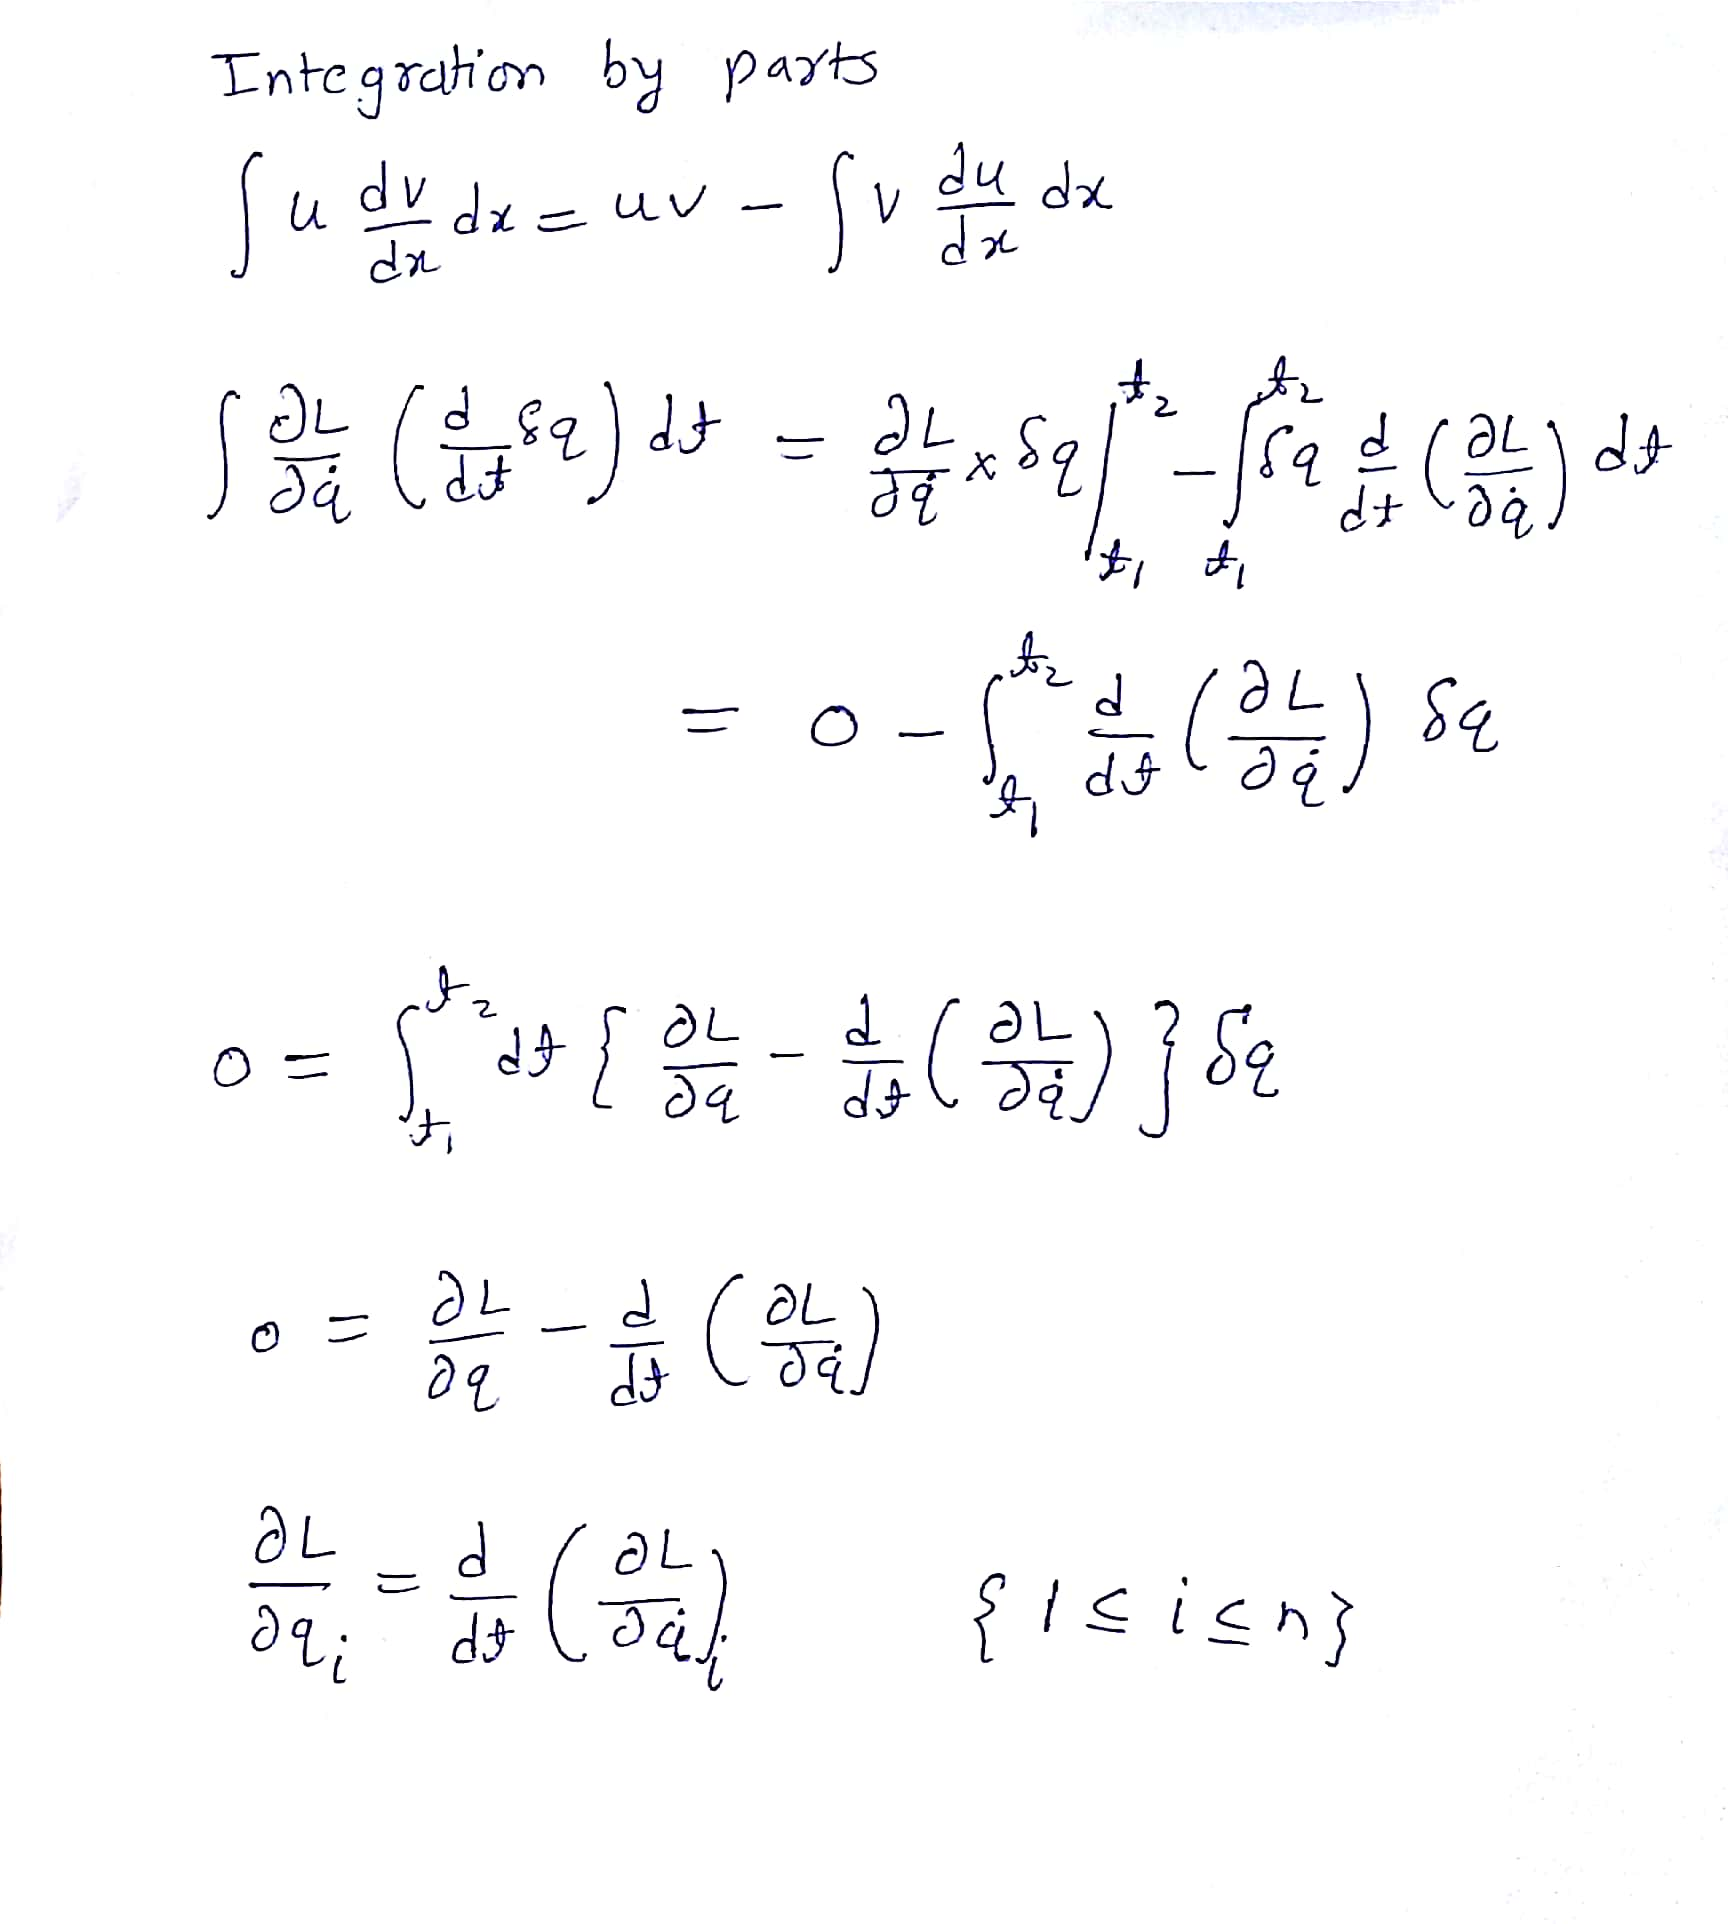 Integration by parts
∫ u dv/dx dx = uv - ∫ v du/dx dx
∫ ∂L/∂q̇ (d/dt δq) dt = ∂L/∂q̇ × δq |_{t₁}^{t₂} - ∫_{t₁}^{t₂} δq d/dt (∂L/∂q̇) dt
= 0 - ∫_{t₁}^{t₂} d/dt (∂L/∂q̇) δq
0 = ∫_{t₁}^{t₂} dt { ∂L/∂q - d/dt (∂L/∂q̇) } δq
0 = ∂L/∂q - d/dt (∂L/∂q̇)
∂L/∂qᵢ = d/dt (∂L/∂q̇ᵢ) {1 ≤ i ≤ n}